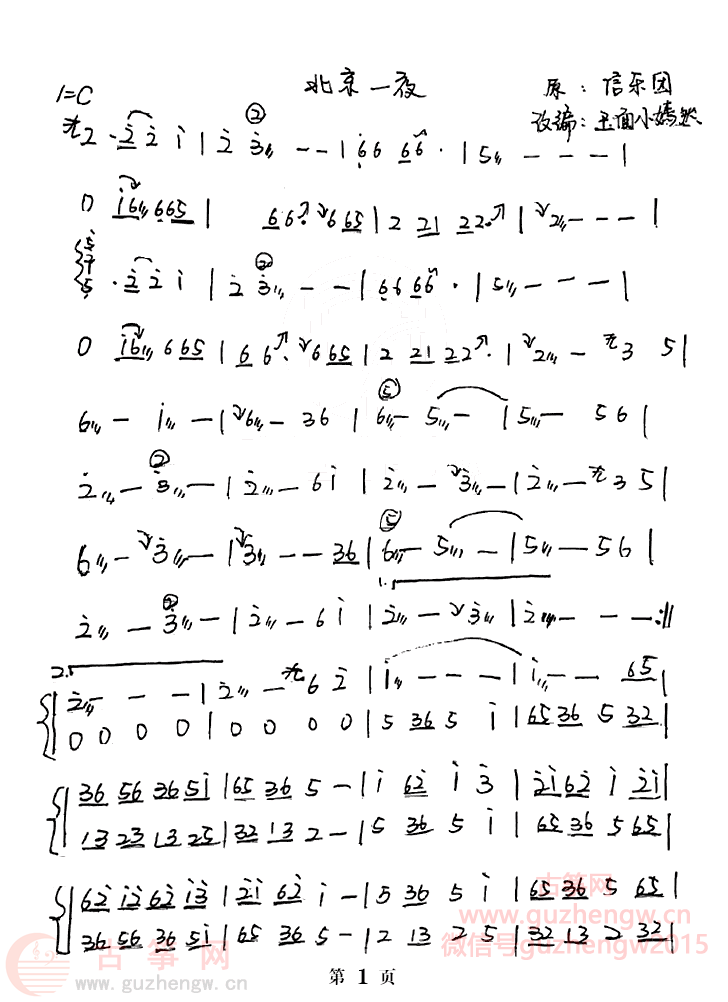 北京一夜
1=C
原：信乐团
改编：玉面小嫣然
2 · 2̇ 2̇ i | 2̇ 3̇〃 - - | 66 66 · | 5〃 - - - |
0 i6〃665 | 66· 665 | 2 21 22· | 2〃 - - - |
· 2̇ 2̇ i | 2̇ 3̇〃 - - | 66 66 · | 5〃 - - - |
0 i6〃665 | 66· 665 | 2 21 22· | 2〃 - 3 5 |
6〃 - i〃 - | 6〃 - 36 | ⑤ 6〃 - 5〃 - | 5〃 - 56 |
2̇〃 - ② 3̇〃 - | 2̇〃 - 6i | 2̇〃 - 3̇〃 - | 2̇〃 - 3 5 |
6〃 - 3̇〃 - | 3̇〃 - - 36 | ⑤ 6〃 - 5〃 - | 5〃 - 56 |
2̇〃 - 3̇〃 - | 2̇〃 - 6 i | 1. 2̇〃 - 3̇〃 | 2̇〃 - - - :||
2. 2̇〃 - - - | 2̇〃 - 6 2̇ | i〃 - - - | i〃 - - 65 |
0 0 0 0 | 0 0 0 0 | 5 36 5 i | 65 36 5 32 |
36 56 36 5i | 65 36 5 - | i 62̇ i 3̇ | 2̇i 62̇ i 2̇i |
13 23 13 25 | 32 13 2 - | 5 36 5 i | 65 36 5 65 |
62̇ i2̇ 62̇ i3̇ | 2̇i 62̇ i - | 5 36 5 i | 65 36 5 65 |
36 56 36 5i | 65 36 5 - | 2 13 2 5 | 32 13 2 32 |
古筝网
www.guzhengw.cn
微信号guzhengw2015
古筝网
www.guzhengw.cn
第 1 页